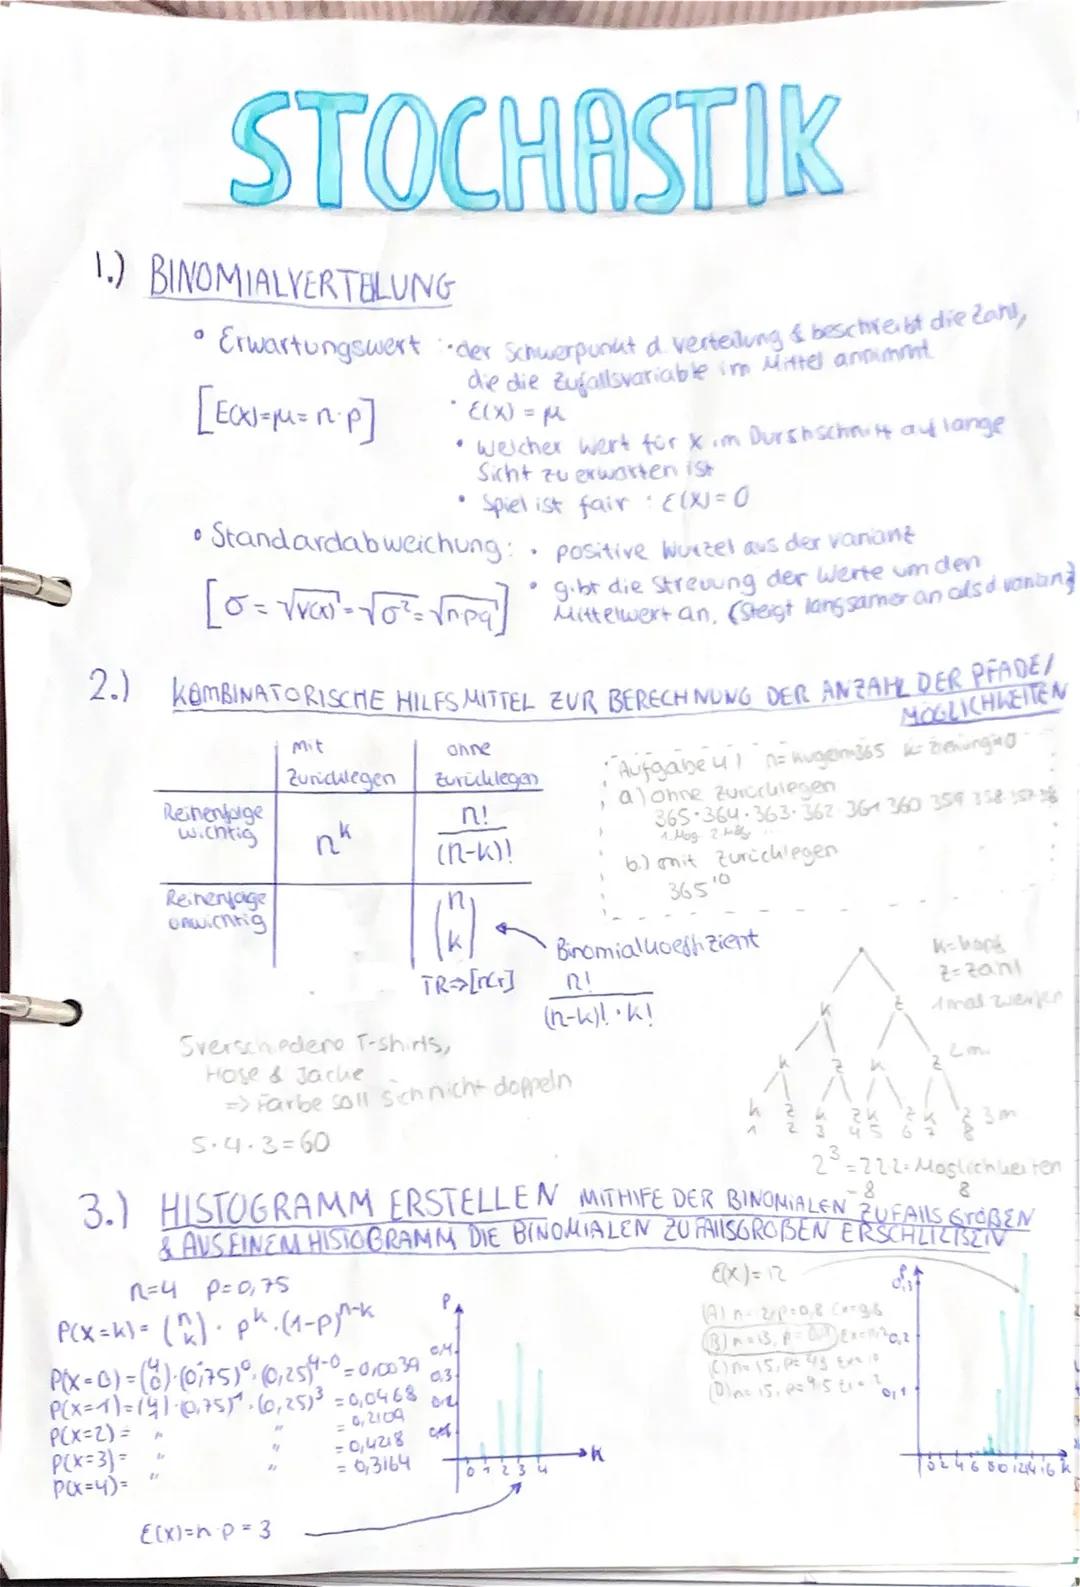 STOCHASTIK
1.) BINOMIALVERTEILUNG
• Erwartungswert : • der Schwerpunkt d. verteilung & beschreibt die Zahl,
die die Zufallsvariable im Mittel annimmt
[E(X)=μ= n·p]
• E(X) = μ
• welcher Wert für X im Durshschnitt auf lange
Sicht zu erwarten ist
• Spiel ist fair : E(X)=0
• Standardabweichung: • positive Wurzel aus der varianz
[σ = √V(X) = √σ² = √n·p·q]
• gibt die Streuung der Werte um den
Mittelwert an, (steigt langsamer an als d varianz)
2.) KOMBINATORISCHE HILFSMITTEL ZUR BERECHNUNG DER ANZAHL DER PFADE/
MÖGLICHKEITEN
mit Zurücklegen
ohne Zurücklegen
Reihenfolge wichtig
n^k
n!
(n-k)!
Reihenfolge unwichtig
(n k)
TR⇒[nCr]
Binomialkoeffizient
n!
(n-k)!·k!
Aufgabe 4)
a) ohne zurücklegen
365·364·363·362 361 360 359 358 357
b.) mit zurücklegen
365^10
K=kopf
Z=Zahl
1 mal werfen
K Z
2 m.
K Z K Z
K Z K Z K Z K Z 3 m
1 2 3 4 5 6 7 8
2³ = 2·2·2 = Möglichkeiten
=8 8
5 verschiedene T-shirts,
Hose & Jacke
=> Farbe soll sich nicht doppeln
5·4·3=60
3.) HISTOGRAMM ERSTELLEN MITHIFE DER BINOMIALEN ZUFALLSGRÖßEN
& AUS EINEM HISTOGRAMM DIE BINOMIALEN ZUFALLSGRÖßEN ERSCHLIEßEN
n=4 p=0,75
P(X=k)= (n k) · p^k · (1-p)^n-k
P(X=0) = (4 0)·(0,75)^0·(0,25)^4-0 = 0,0039
P(X=1) = (4 1)·(0,75)^1·(0,25)^3 = 0,0468
P(X=2) = " " = 0,2109
P(X=3) = " " = 0,4218
P(X=4) = " " = 0,3164
E(X)=n·p = 3
P
0,4
0,3
0,2
0 1 2 3 4
K
E(X)=12
(A)
(B) n=15,
(C) n=15,
(D) n=15,
P
0,3
0,2
0,1
0 2 4 6 8 10 12 14 16 k